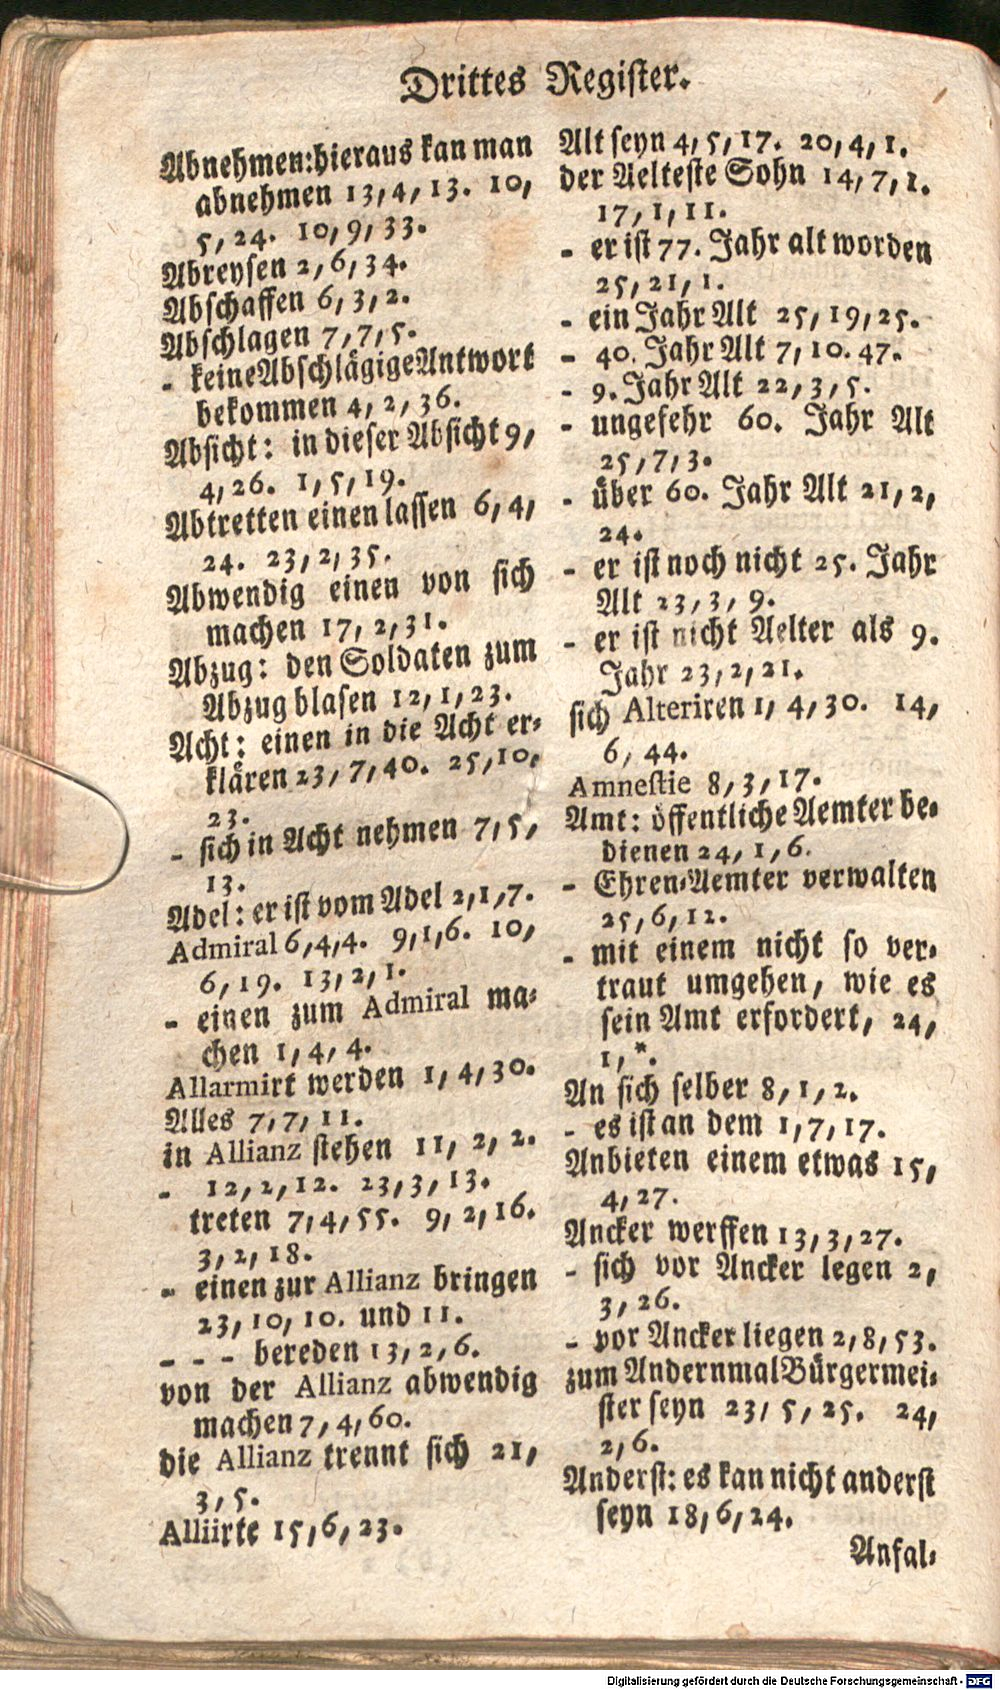 Drittes Register.
Abnehmen: hieraus kan man
abnehmen 13, 4, 13. 10,
5, 24. 10, 9, 33.
Abreysen 2, 6, 34.
Abschaffen 6, 3, 2.
Abschlagen 7, 7, 5.
- keine Abschlägige Antwort
bekommen 4, 2, 36.
Absicht: in dieser Absicht 9,
4, 26. 1, 5, 19.
Abtretten einen lassen 6, 4,
24. 23, 2, 35.
Abwendig einen von sich
machen 17, 2, 31.
Abzug: den Soldaten zum
Abzug blasen 12, 1, 23.
Acht: einen in die Acht er-
klären 23, 7, 40. 25, 10,
23.
- sich in Acht nehmen 7, 5,
13.
Adel: er ist vom Adel 2, 1, 7.
Admiral 6, 4, 4. 9, 1, 6. 10,
6, 19. 13, 2, 1.
- einen zum Admiral ma-
chen 1, 4, 4.
Allarmirt werden 1, 4, 30.
Alles 7, 7, 11.
in Allianz stehen 11, 2, 2.
- 12, 2, 12. 23, 3, 13.
treten 7, 4, 55. 9, 2, 16.
3, 2, 18.
- einen zur Allianz bringen
23, 10, 10. und 11.
- - - bereden 13, 2, 6.
von der Allianz abwendig
machen 7, 4, 60.
die Allianz trennt sich 21,
3, 5.
Alliirte 15, 6, 23.
Alt seyn 4, 5, 17. 20, 4, 1.
der Aelteste Sohn 14, 7, 1.
17, 1, 11.
- er ist 77. Jahr alt worden
25, 21, 1.
- ein Jahr Alt 25, 19, 25.
- 40. Jahr Alt 7, 10. 47.
- 9. Jahr Alt 22, 3, 5.
- ungefehr 60. Jahr Alt
25, 7, 3.
- über 60. Jahr Alt 21, 2,
24.
- er ist noch nicht 25. Jahr
Alt 23, 3, 9.
- er ist nicht Aelter als 9.
Jahr 23, 2, 21.
sich Alteriren 1, 4, 30. 14,
6, 44.
Amnestie 8, 3, 17.
Amt: öffentliche Aemter be-
dienen 24, 1, 6.
- Ehren-Aemter verwalten
25, 6, 12.
- mit einem nicht so ver-
traut umgehen, wie es
sein Amt erfordert, 24,
1, *.
An sich selber 8, 1, 2.
- es ist an dem 1, 7, 17.
Anbieten einem etwas 15,
4, 27.
Ancker werffen 13, 3, 27.
- sich vor Ancker legen 2,
3, 26.
- vor Ancker liegen 2, 8, 53.
zum Andernmal Bürgermei-
ster seyn 23, 5, 25. 24,
2, 6.
Anderst: es kan nicht anderst
seyn 18, 6, 24.
Anfal-
Digitalisierung gefördert durch die Deutsche Forschungsgemeinschaft - DFG